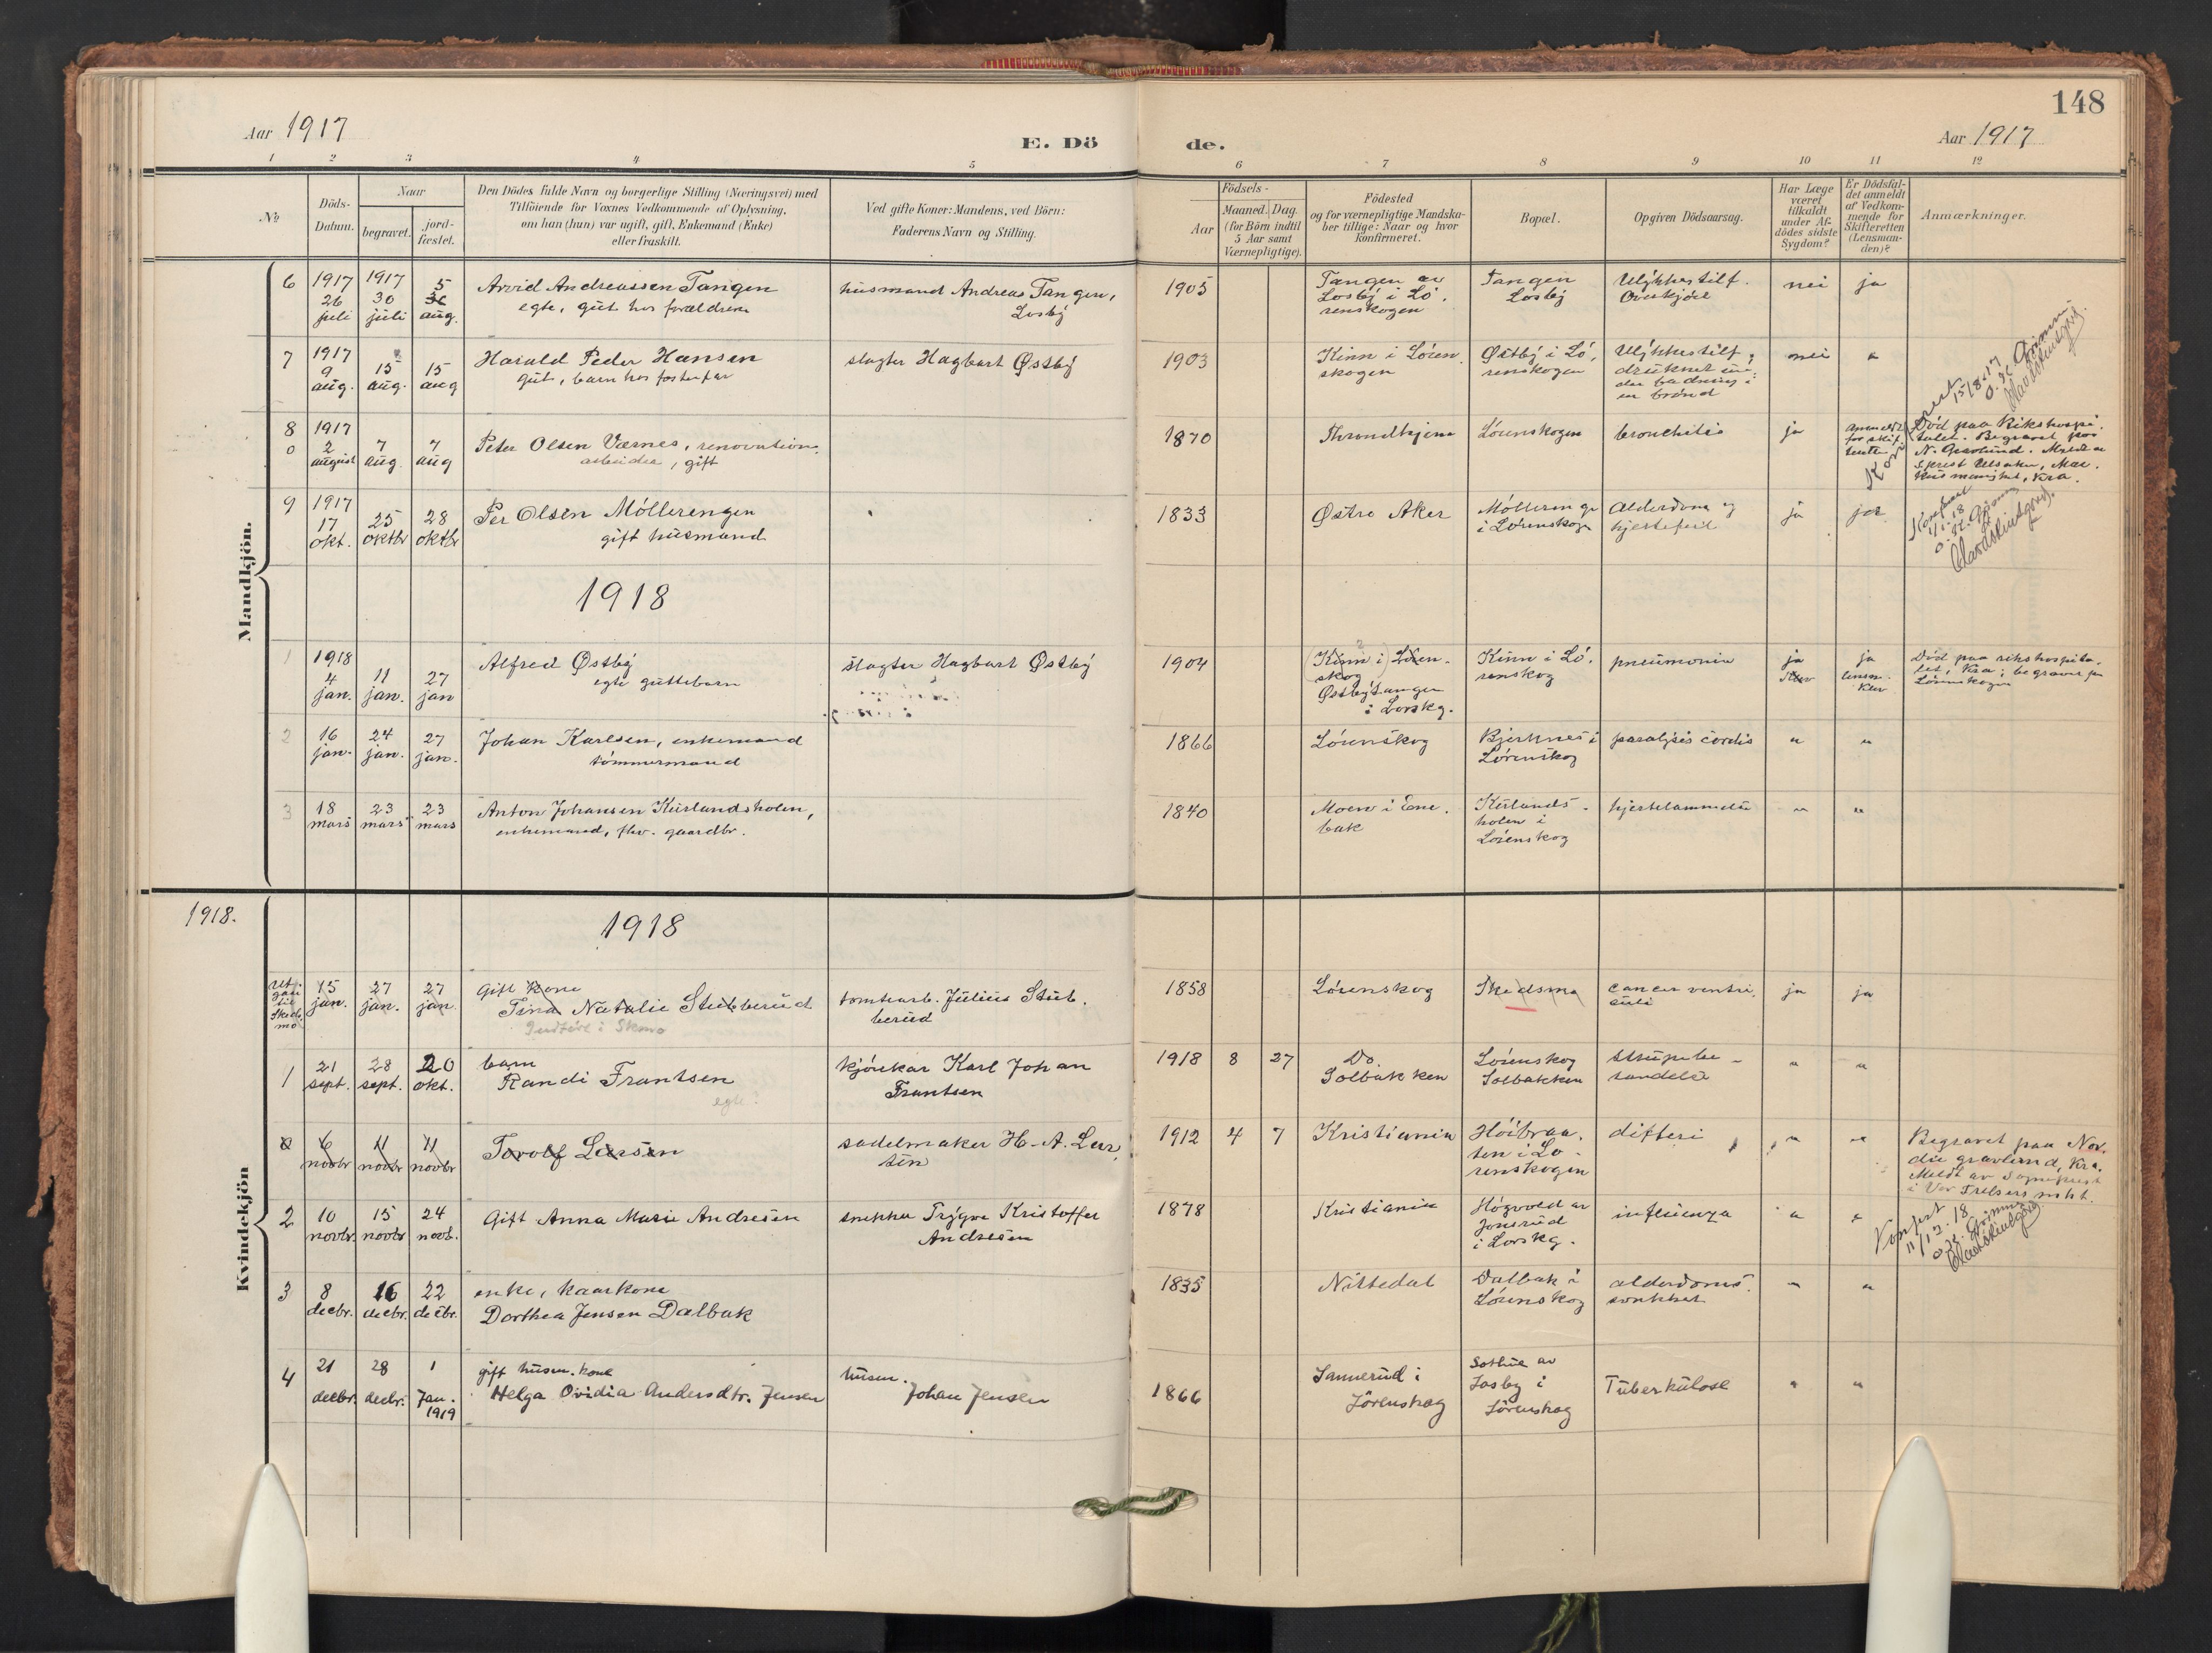 148
Aar 1917
E. Dö
de.
Aar 1917
1 2 3 4 5 6 7 8 9 10 11 12
№
Döds-
Datum.
Naar
begravet.
jord-
fæstet.
Den Dödes fulde Navn og borgerlige Stilling (Næringsvei) med
Tilföiende for Voxnes Vedkommende af Oplysning,
om han (hun) var ugift, gift, Enkemand (Enke)
eller fraskilt.
Ved gifte Koner: Mandens, ved Börn:
Faderens Navn og Stilling.
Födsels-
Aar
Maaned. Dag.
(for Börn indtil
5 Aar samt
Værnepligtige).
Födested
og for værnepligtige Mandska-
ber tillige: Naar og hvor
konfirmeret.
Bopæl.
Opgiven Dödsaarsag.
Har Læge
været
tilkaldt
under Af-
dödes sidste
Sygdom?
Er Dödsfal-
det anmeldt
af Vedkom-
mende for
Skifteretten
(Lensman-
den)?
Anmærkninger.
Mandkjön.
6
1917
26
juli
1917
30
juli
5
aug.
Arvid Andreassen Tangen
egte, gut hos forældrene
husmand Andreas Tangen,
Losby
1905
Tangen av
Losby i Lö-
renskogen
Tangen
Losby
Ulykkestilf.
Overkjöre
nei
ja
7
1917
9
aug.
15
aug.
15
aug
Harald Peder Hansen
gut, barn hos fosterfar
slagter Hagbart Østby
1903
Kinn i Lören-
skogen
Østby i Lö-
renskogen
Ulykkestilf,
druknet un-
der badning i
en brönd
nei
"
15/8.17
8
0
1917
2
august
7
aug.
7
aug
Peter Olsen Værnes, renovations-
arbeider, gift
1870
Throndhjem
Lörenskogen
bronchitis
ja
Anmeldt
for skif-
Död paa Rikshospi-
talet. Begravet paa
9
1917
17
okt.
25
oktbr
28
oktbr
Per Olsen Möllerengen
gift husmand
1833
Østre Aker
Möllerenge
i Lörenskogen
Alderdom og
hjertefeil
ja
ja
11/1.18
1918
1
1918
4
jan.
11
jan.
27
jan
Alfred Østby
egte guttebarn
slagter Hagbart Østby
1904
(Kinn i Lören-
skog)
Østbytangen
i Lörskg.
Kinn i Lö-
renskog
pneumonia
ja
ja
lensm.
Död paa rikshospita-
let, Kra; begravet paa
Lörenskogen
2
16
jan.
24
jan.
27
jan.
Johan Karlsen, enkemand
tömmermand
1866
Lörenskog
Bjerknes i
Lörenskog
paralysis cordis
"
"
3
18
mars
23
mars
23
mars
Anton Johansen Kurlandsholen,
enkemand, fhv. gaardbr.
1840
Moen i Ene-
bak
Kurlands-
holen i
Lörenskog
hjertelammelse
"
"
1918.
Kvindekjön
1918
Ut-
gaar
til
Skeds-
mo
15
jan.
27
jan.
27
jan.
Gift Kone
Tina Natalie Stubberud
Indföre i Skmo
tomtearb. Julius Stub-
berud
1858
Lörenskog
Skedsmo
cancer ventri-
culi
ja
ja
1
21
sept.
28
sept.
20
okt.
barn
Randi Frantsen
egte?
kjörekar Karl Johan
Frantsen
1918 8 27
Do
Solbakken
Lörenskog
Solbakken
strupebe-
tændelse
"
"
2
6
novbr
11
novbr
11
novbr
Torolf Larsen
sadelmaker H. A. Lar-
sen
1912 4 7
Kristiania
Höibraa-
ten i Lö-
renskogen
difteri
"
"
Begravet paa Nor-
dre gravlund, Kra.
Meldt av Sogneprest
i Vor Frelsers mht.
2
10
novbr.
15
novbr
24
novb.
Gift Anna Marie Andresen
snekker Trygve Kristoffer
Andresen
1878
Kristiania
Högvold av
Jonsrud
i Lörskg.
influenza
"
"
11/12.18
3
8
decbr.
16
decbr.
22
decbr.
enke, kaarkone
Dorthea Jensen Dalbak
1835
Nittedal
Dalbak i
Lörenskog
alderdoms-
svakhet
"
"
4
21
decbr.
28
decbr.
1
Jan.
1919
gift husm. kone
Helga Ovidia Andersdtr. Jensen
husm.
Johan Jensen
1866
Sannerud i
Lörenskog
Losby i
Lörenskog
Tuberkulose
"
"